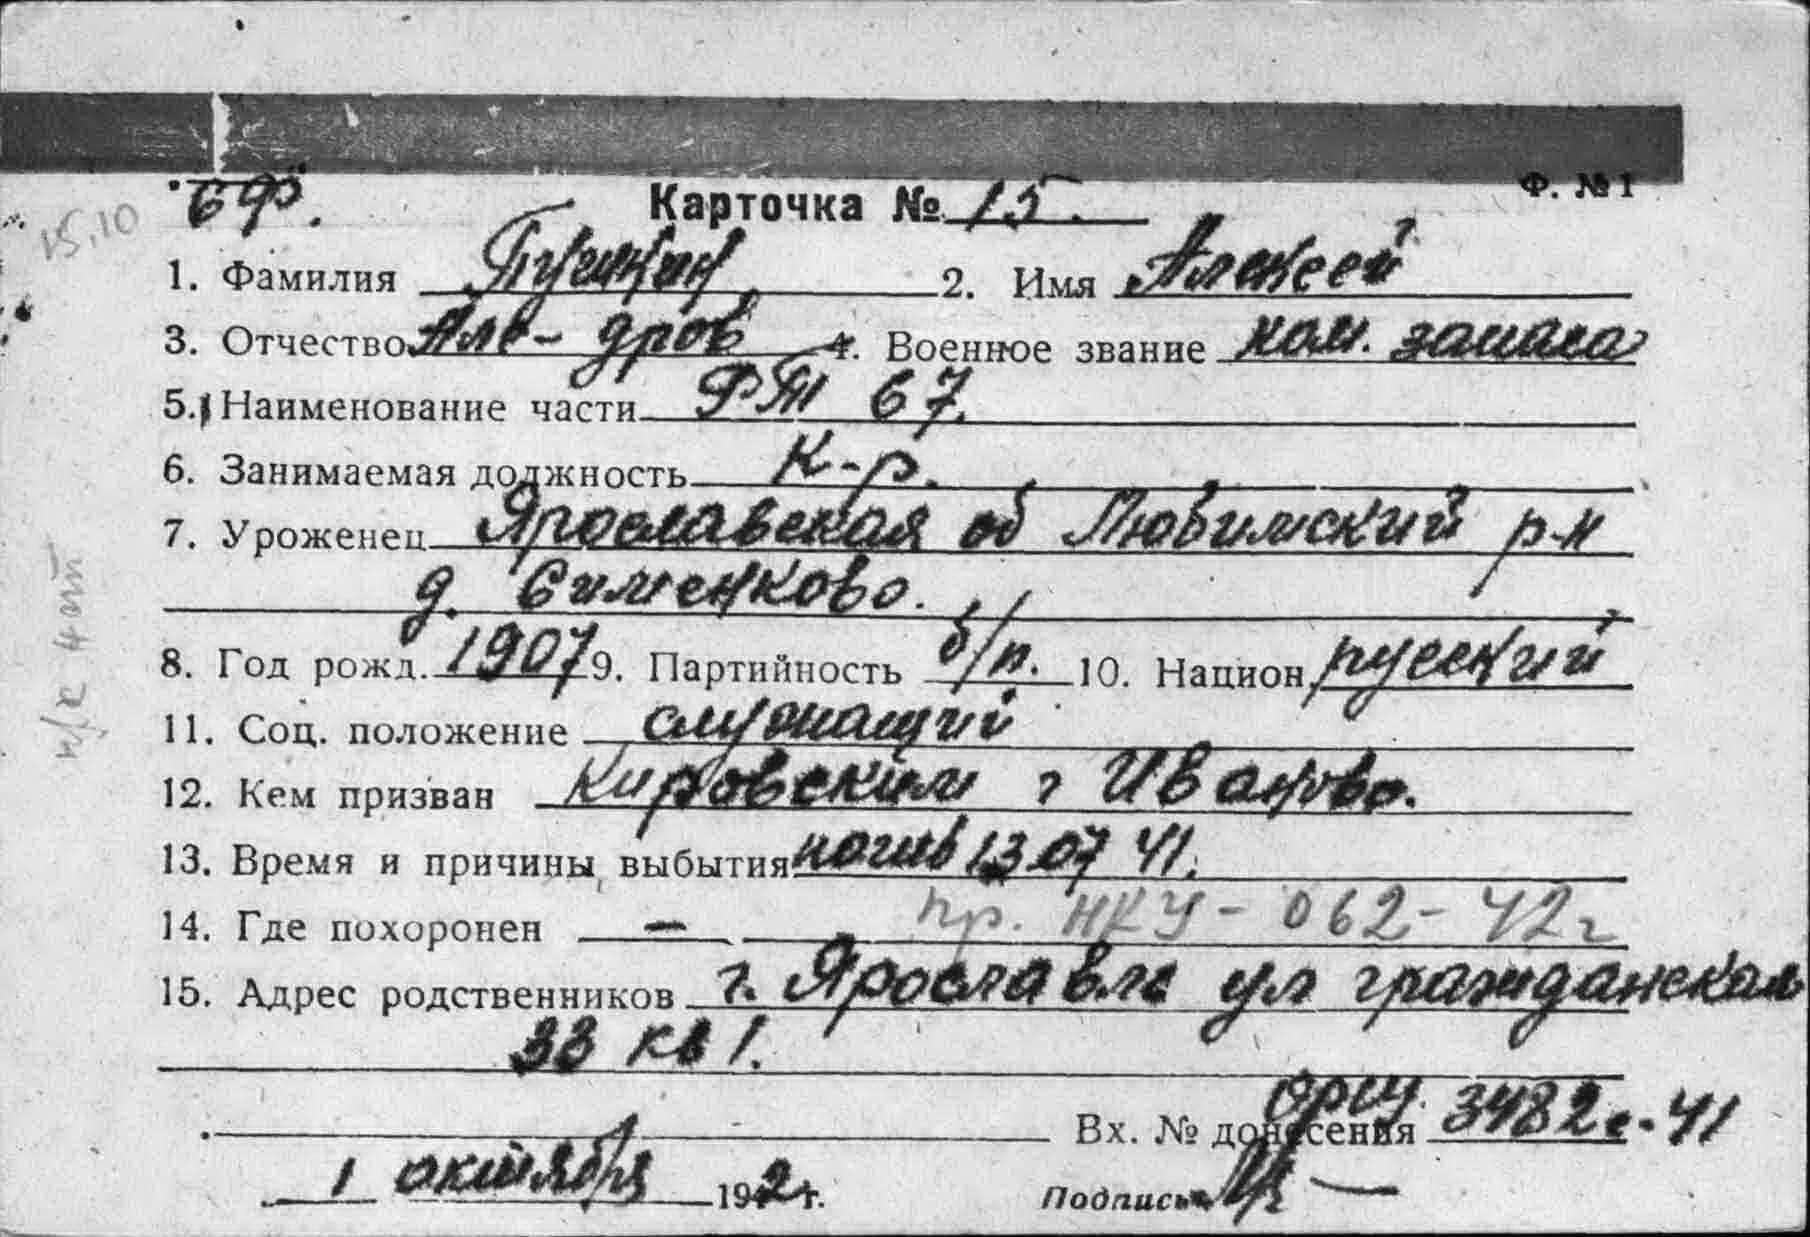 "СФ". Карточка № 15. Ф. № 1
15.10
1. Фамилия Пушкин 2. Имя Алексей
3. Отчество Але-дров 4. Военное звание ком. запаса
5. Наименование части РТ 67.
6. Занимаемая должность К-р.
7. Уроженец Ярославская об Любимский р-н
д. Сименково.
8. Год рожд. 1907 9. Партийность б/п. 10. Национ. русский
11. Соц. положение служащий
12. Кем призван Кировским г Иваново.
13. Время и причины выбытия погиб 13 07 41.
14. Где похоронен — пр. НКУ-062-42г
15. Адрес родственников г. Ярославль ул гражданская
33 кв 1.
Вх. № донесения 3482с-41
1 октября 1942 г. Подпись